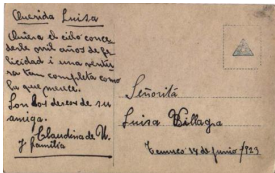 Querida Luisa
Quiera el cielo conce
derte mil años de fe
licidad i una ventu
ra tan completa como
la que merece.
Son los deseos de su
amiga.
Claudina de U.
y familia
Señorita
Luisa Villagra
Temuco 14 de Junio/923